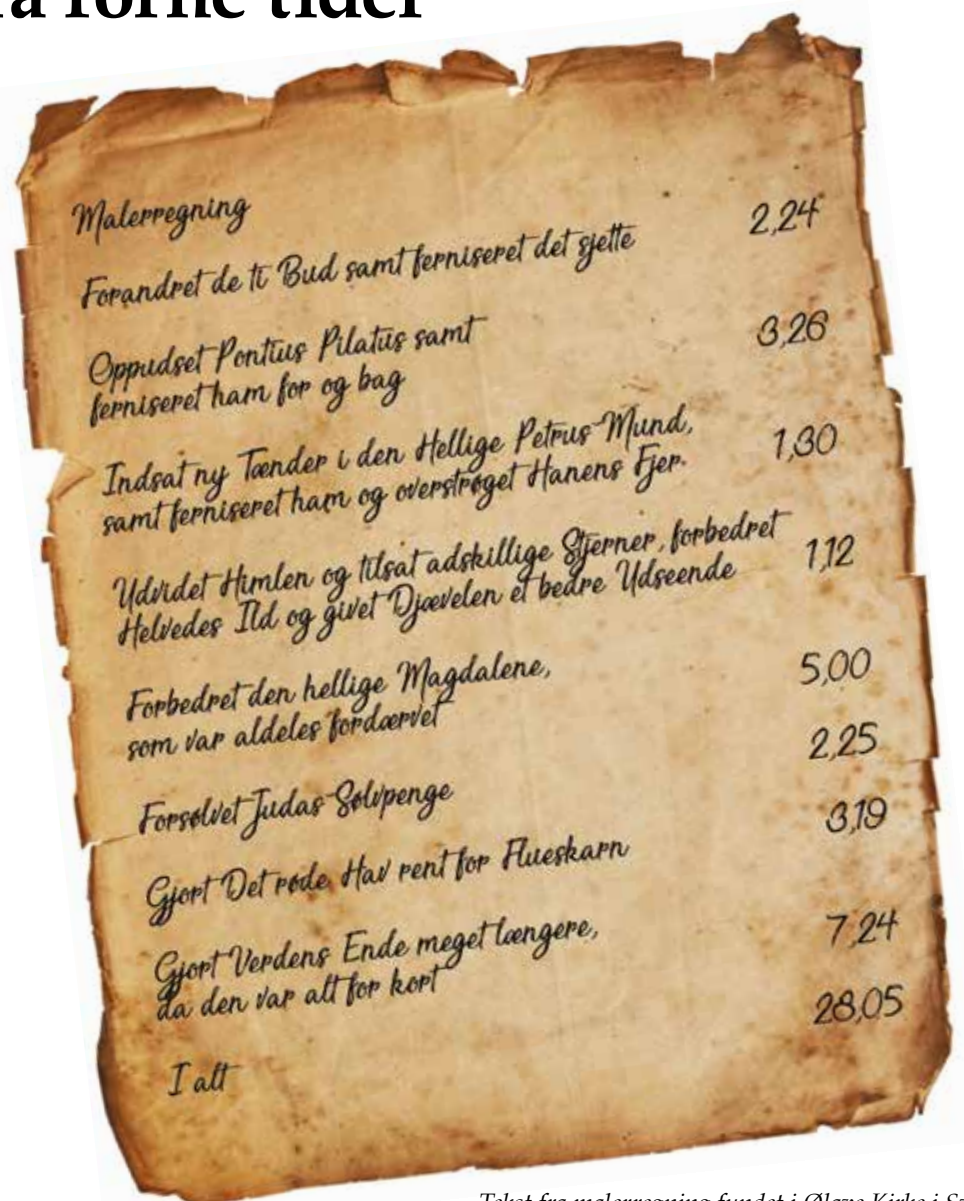 forne tider
Malerregning
Forandret de ti Bud samt ferniseret det sjette 2,24
Oppudset Pontius Pilatus samt 3,26
ferniseret ham for og bag
Indsat ny Tænder i den Hellige Petrus Mund, 1,30
samt ferniseret ham og overstrøget Hanens Fjer.
Udvidet Himlen og tilsat adskillige Stjerner, forbedret 1,12
Helvedes Ild og givet Djævelen et bedre Udseende
Forbedret den hellige Magdalene, 5,00
som var aldeles fordærvet
Forsølvet Judas Sølvpenge 2,25
Gjort Det røde Hav rent for Flueskarn 3,19
Gjort Verdens Ende meget længere, 7,24
da den var alt for kort
I alt 28,05
Tekst fra malerregning fundet i Kirke i